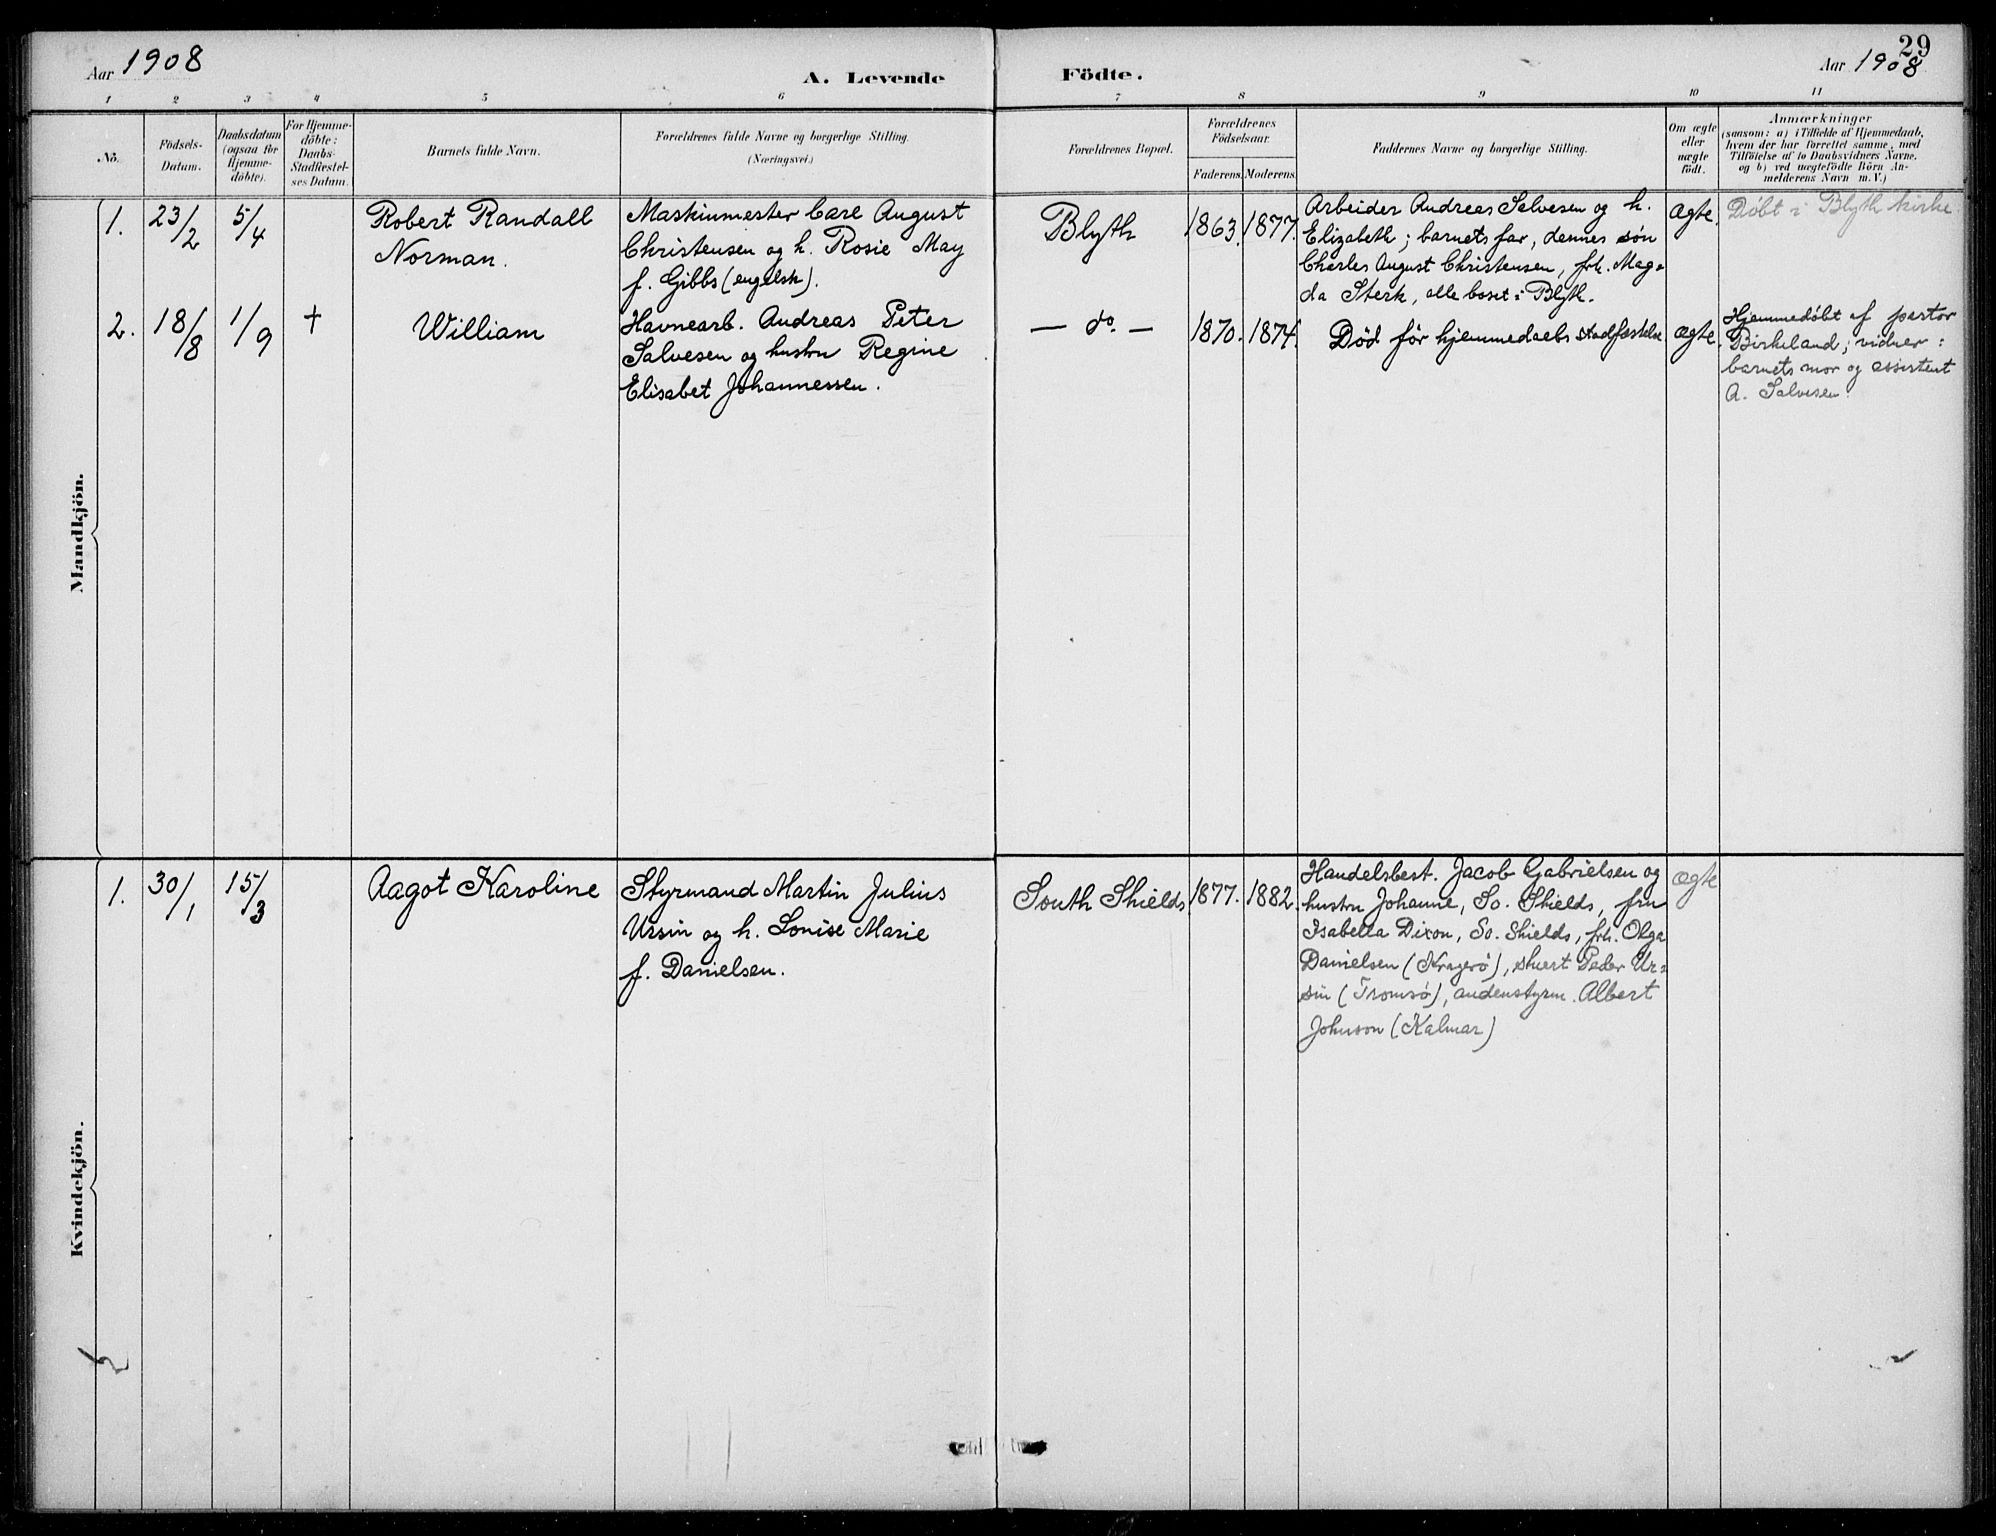 29
Aar 1908
A. Levende
Födte.
Aar 1908
1 2 3 4 5 6 7 8 9 10 11
No.
Födsels-
Datum.
Daabsdatum
(ogsaa for
Hjemme-
döbte).
For Hjemme-
döbte:
Daabs-
Stadfæstel-
ses Datum.
Barnets fulde Navn.
Forældrenes fulde Navne og borgerlige Stilling.
(Næringsvei.)
Forældrenes Bopæl.
Forældrenes
Födselsaar.
Faderens. Moderens.
Faddernes Navne og borgerlige Stilling.
Om ægte
eller
uægte
født.
Anmærkninger
(saasom: a) i Tilfælde af Hjemmedaab,
hvem der har forrettet samme, med
Tilföielse af to Daabsvidners Navne,
og b) ved uægtefödte Börn An-
melderens Navn m. V.)
Mandkjön.
1. 23/2 5/4
Robert Randall
Norman.
Maskinmester Carl August
Christensen og h. Rosie May
f. Gibbs (engelsk).
Blyth
1863. 1877.
Arbeider Andreas Salvesen og h.
Elizabeth; barnets far, dennes søn
Charles August Christensen, frk. Mag-
da Sterk, alle boset i Blyth.
ægte.
Døbt i Blyth kirke.
2. 18/8 1/9 +
William
Havnearb. Andreas Peter
Salvesen og hustru Regine
Elisabet Johannessen.
— do. —
1870. 1874.
Død før hjemmedaabs stadfæstelse
ægte.
Hjemmedøbt af pastor
Birkeland; vidner:
barnets mor og assistent
A. Salvesen.
Kvindekjön.
1. 30/1 15/3
Aagot Karoline
Styrmand Martin Julius
Ursin og h. Lovise Marie
f. Danielsen.
South Shields
1877. 1882.
Handelsbest. Jacob Gabrielsen og
hustru Johanne, So. Shields, fru
Isabella Dixon, So. Shields, frk. Olga
Danielsen (Kragerø), stuert Peder Ur-
sin (Tromsø), andenstyrm. Albert
Johnson (Kalmar)
ægte